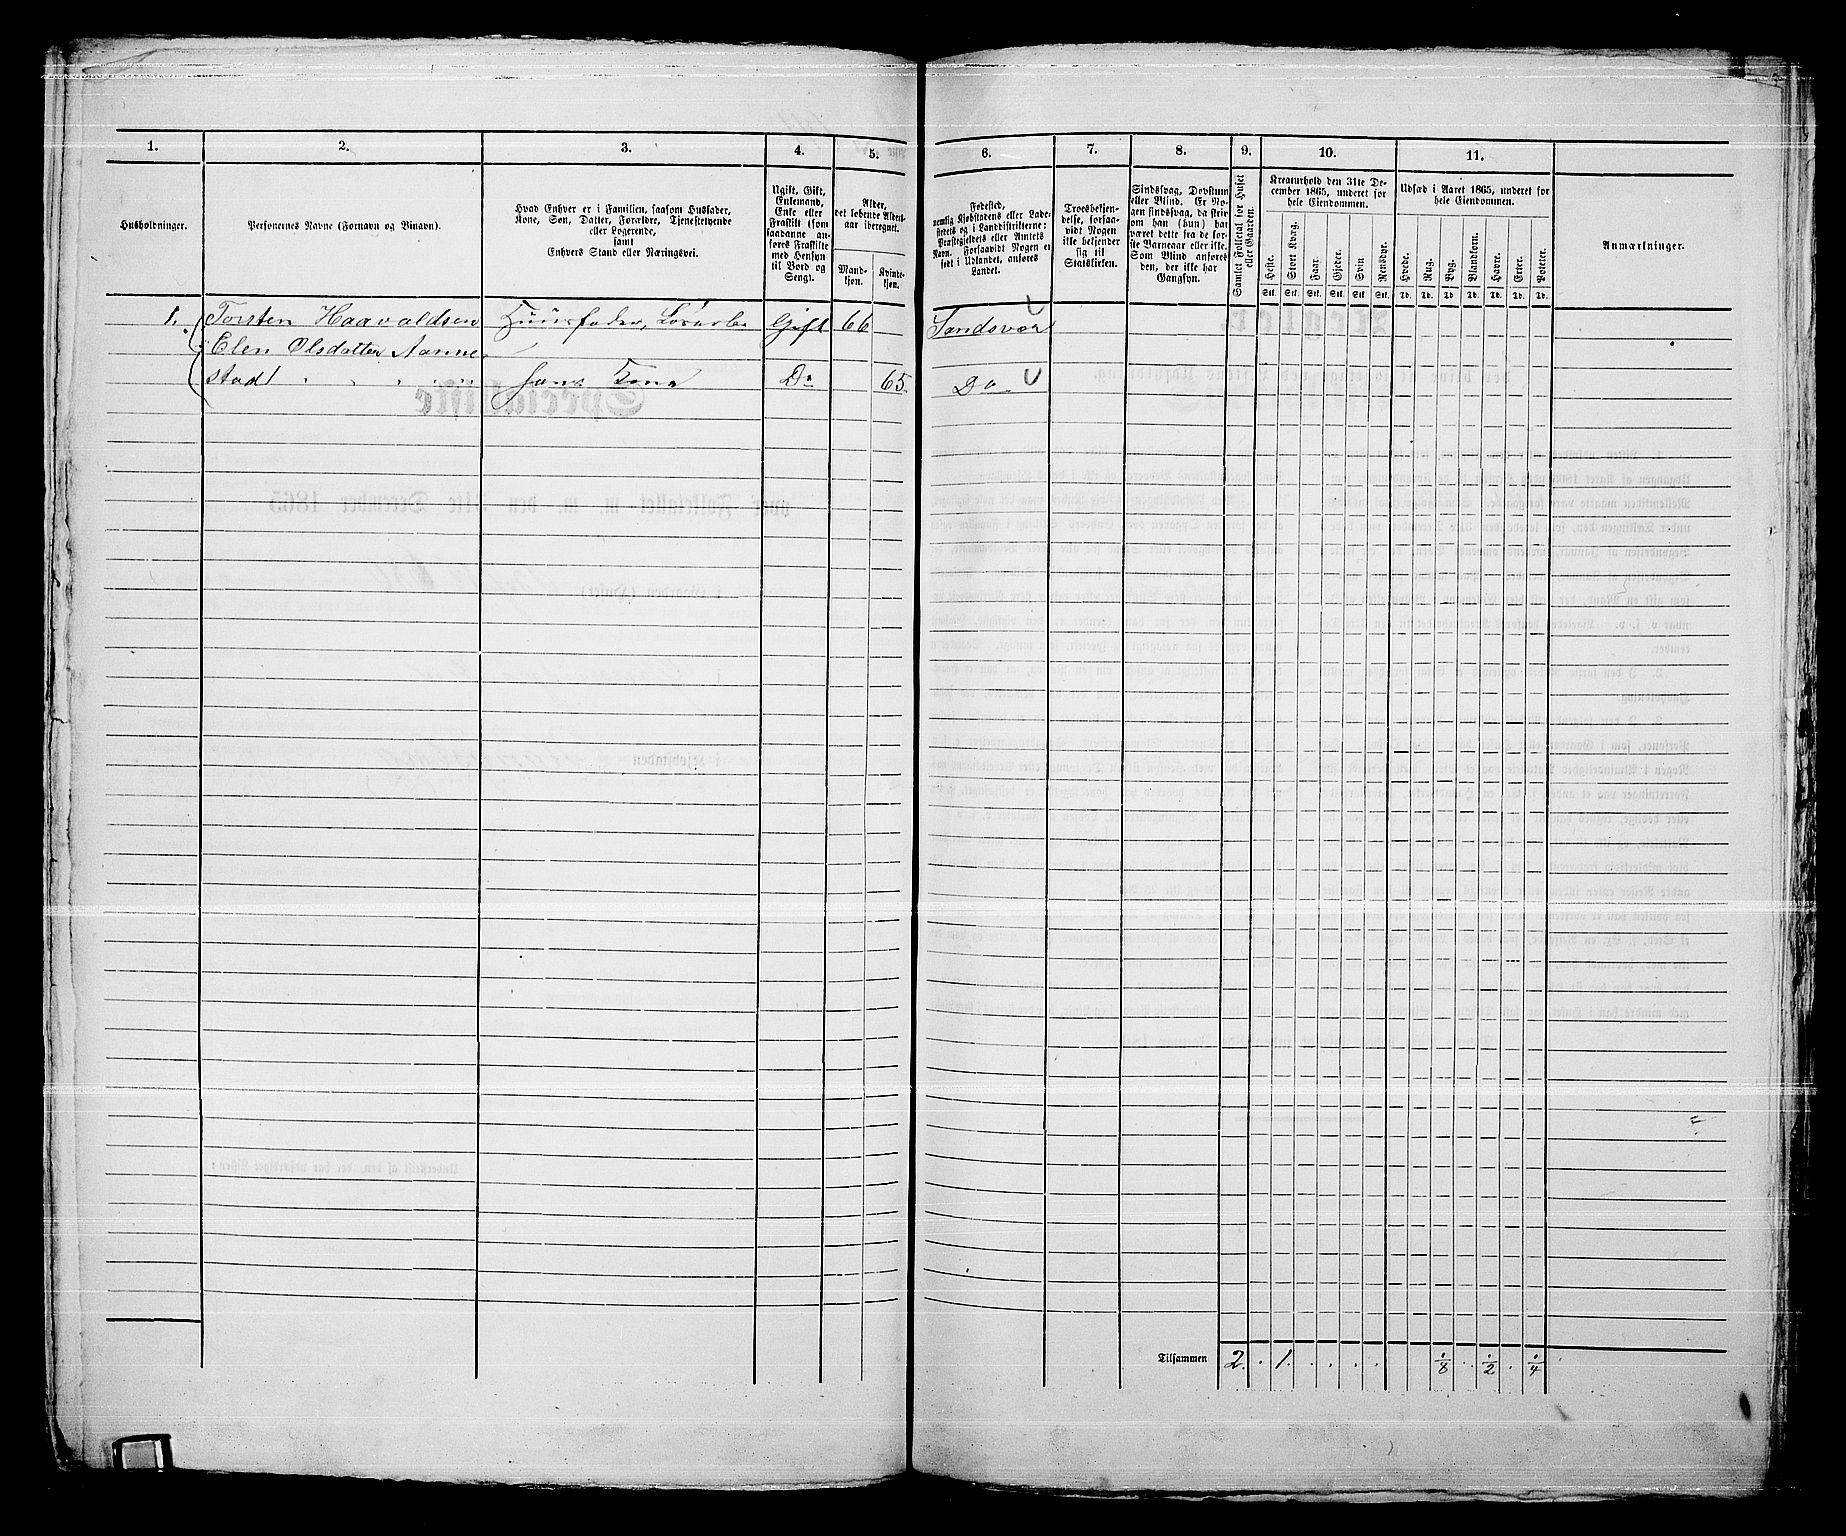 1.
2.
3.
4.
5.
Husholdninger.
Personernes Navne (Fornavn og Binavn).
Hvad Enhver er i Familien, saasom Husfader,
Kone, Søn, Datter, Forældre, Tjenestetyende
eller Logerende,
samt
Enhvers Stand eller Næringsvei.
Ugift, Gift,
Enkemand,
Enke eller
Fraskilt (som
saadanne an-
føres Fraskilte
med Hensyn
til Bord og
Seng).
Alder,
det løbende Alders-
aar iberegnet.
Mand-
kjøn.
Kvinde-
kjøn.
1. Torsten Haavaldsen Huusfader, Gift 66
Elen Olsdatter
stad hans Kone Do 65.
6.
7.
8.
9.
10.
11.
Fødested,
nemlig Kjøbstadens eller Lade-
stedets og i Landdistrikterne:
Præstegjeldets eller Amtets
Navn. Forsaavidt Nogen er
født i Udlandet, anføres
Landet.
Troesbekjen-
delse, forsaa-
vidt Nogen
ikke bekjender
sig til
Statskirken.
Sindssvag, Døvstum
eller Blind. Er No-
gen sindssvag, da skriv
om han (hun) har
været dette fra de før-
ste Barneaar eller ikke.
Som Blind anføres
den, der ikke har
Gangsyn.
Samlet Folketal for Huset
eller Gaarden.
Kreaturhold den 31te De-
cember 1865, underet for
hele Eiendommen.
Heste.
Stort Kvæg.
Faar.
Gjeder.
Svin
Rensdyr.
Stk. Stk. Stk. Stk. Stk. Stk.
Udsæd i Aaret 1865, underet for
hele Eiendommen.
Hvede.
Rug.
Byg.
Blandkorn.
Havre.
Erter.
Poteter.
Td. Td. Td. Td. Td. Td. Td.
Anmærkninger.
Sandsvær
Do
Tilsammen 2. . 1. . . . . 1/8 . . 1/2 . 1/4